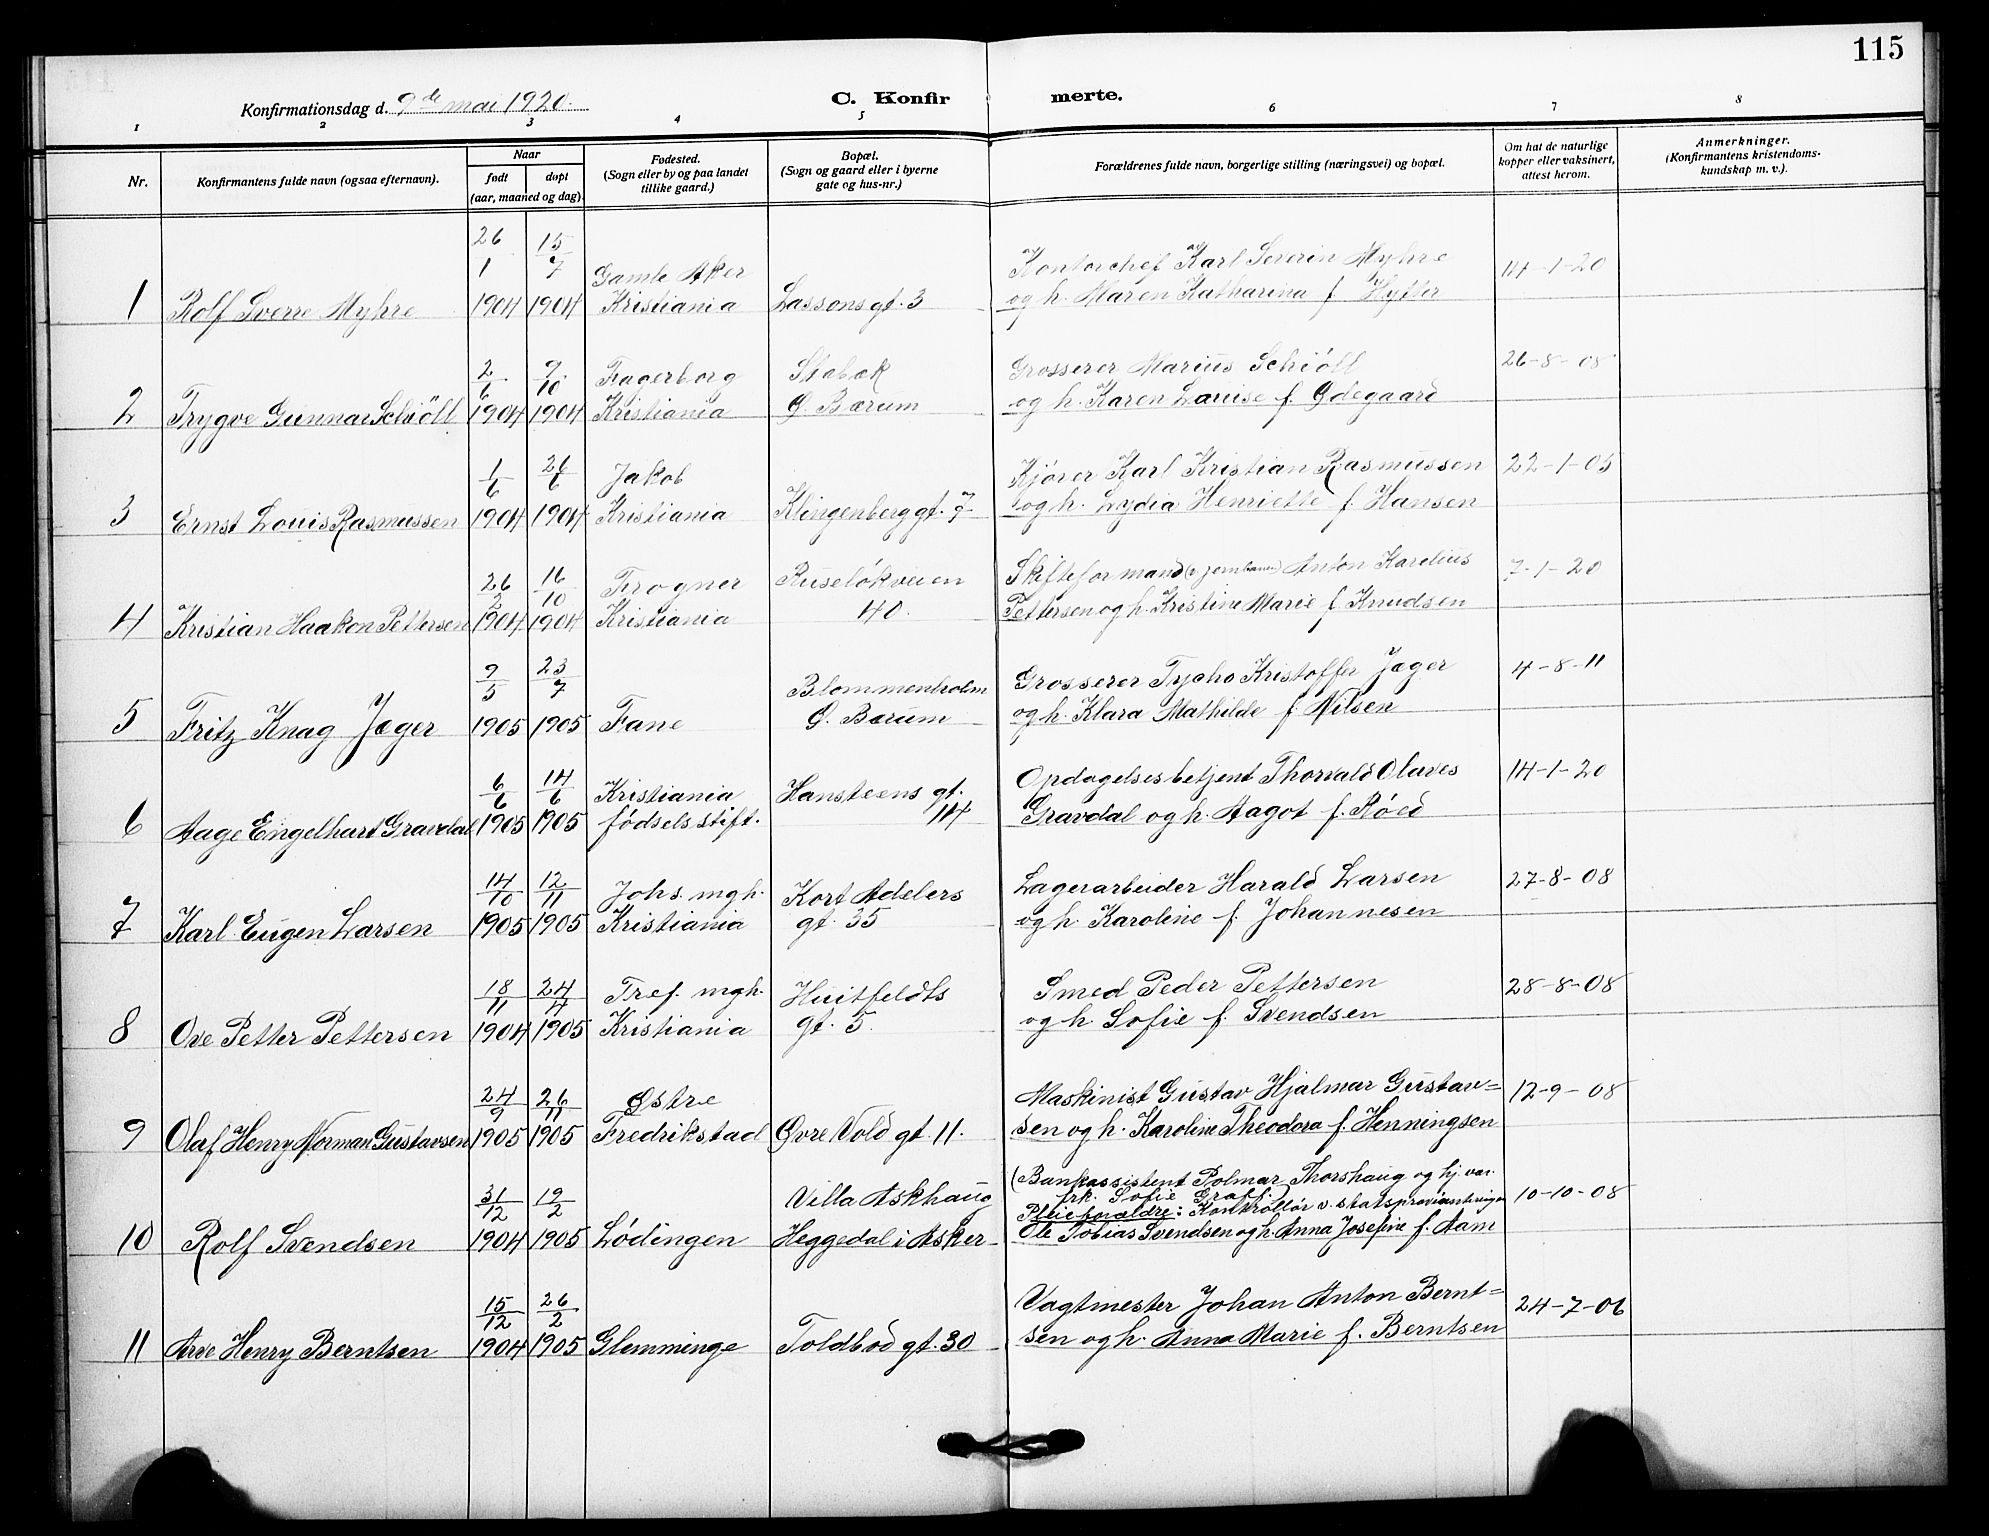 115
Konfirmationsdag d. 9de mai 1920.
C. Konfir merte.
1 2 3 4 5 6 7 8
Nr.
Konfirmantens fulde navn (ogsaa efternavn).
Naar
født døpt
(aar, maaned og dag).
Fødested.
(Sogn eller by og paa landet
tillike gaard.)
Bopæl.
(Sogn og gaard eller i byerne
gate og hus-nr.)
Forældrenes fulde navn, borgerlige stilling (næringsvei) og bopæl.
Om hat de naturlige
kopper eller vaksinert,
attest herom.
Anmerkninger.
(Konfirmantens kristendoms-
kundskap m. v.).
1 Rolf Sverre Myhre 26/1 1904 15/7 1904
Gamle Aker
Kristiania
Lassons gt. 3
Kontorchef Karl Severin Myhre
og h. Maren Katharina f. Hytter
14-1-20
2 Trygve Gunnar Schiöll 2/6 1904 9/10 1904
Fagerborg
Kristiania
Stabæk
Ø. Bærum
Grosserer Marius Schiöll
og h. Karen Lauise f. Ødegaard
26-8-08
3 Ernst Louis Rasmussen 1/6 1904 26/6 1904
Jakob
Kristiania
Klingenberggt. 7
Kjører Karl Kristian Rasmussen
og h. Lydia Henriette f. Hansen
22-1-05
4 Kristian Haakon Pettersen 26/2 1904 16/10 1904
Frogner
Kristiania
Ruseløkveien
40.
Skifteformand (v. jernbanen) Anton Karelius
Pettersen og h. Kristine Marie f. Knudsen
7-1-20
5 Fritz Knag Jæger 9/5 1905 23/7 1905
Fane
Blommenholm
Ø. Bærum
Grosserer Tycho Kristoffer Jæger
og h. Klara Mathilde f. Nilsen
4-8-11
6 Aage Engelhart Gravdal 6/6 1905 14/6 1905
Kristiania
fødselsstift.
Hansteens gt.
14
Opdagelsesbetjent Thorvald Olaves
Gravdal og h. Aagot f. Røed
14-1-20
7 Karl Eugen Larsen 14/10 1905 12/11 1905
Johs. mgh.
Kristiania
Kort Adelers
gt. 35
Lagerarbeider Harald Larsen
og h. Karoline f. Johannesen
27-8-08
8 Ove Petter Pettersen 18/11 1904 24/4 1905
Tref. mgh.
Kristiania
Huitfeldts
gt. 5.
Smed Peder Pettersen
og h. Sofie f. Svendsen
28-8-08
9 Olaf Henry Norman Gustavsen 24/9 1905 26/11 1905
Østre
Fredrikstad
Øvre Vold gt. 11.
Maskinist Gustav Hjalmar Gustav=
sen og h. Karoline Theodora f. Henningsen
12-9-08
10 Rolf Svendsen 31/12 1904 19/2 1905
Lødingen
Villa Askhaug
Heggedal i Asker
(Bankassistent Polmar Thorshaug og
frk. Sofie Graff.)
Pleieforældre: Kontrollør v. statsprovianteringen
Ole Tobias Svendsen og h. Anna Josefine f. Aam
10-10-08
11 Arve Henry Berntsen 15/12 1904 26/2 1905
Glemminge
Toldbod gt. 30
Vagtmester Johan Anton Bernt=
sen og h. Anna Marie f. Berntsen
24-7-06